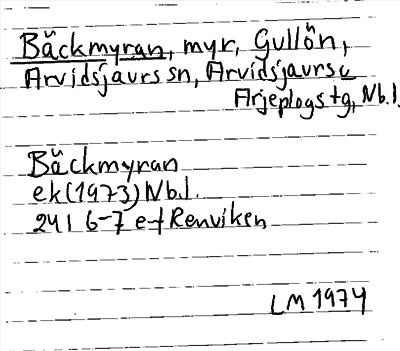 Bäckmyran, myr, Gullön,
Arvidsjaurs sn, Arvidsjaurs o
Arjeplogs tg, Nb.l.
Bäckmyran
ek (1973) Nb.l.
24I 6-7 e-f Renviken
LM 1974